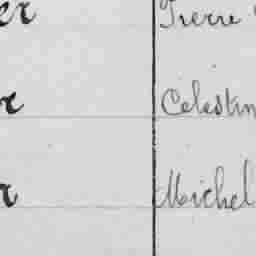 er Pierre
r Celestin
r Michel